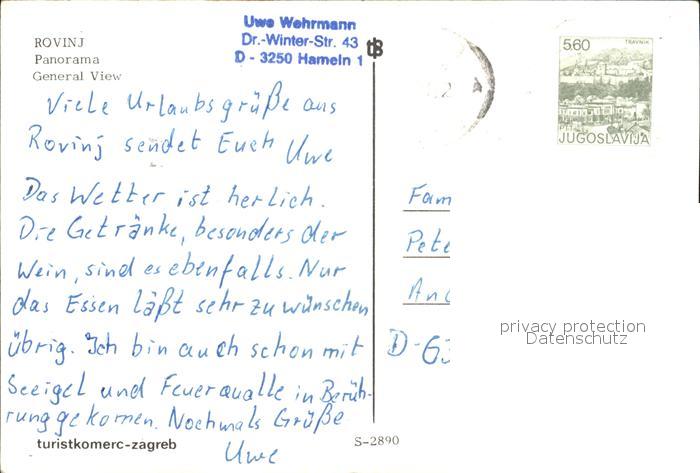 Uwe Wehrmann
Dr.-Winter-Str. 43
D - 3250 Hameln 1
ROVINJ
Panorama
General View
Viele Urlaubsgrüße aus
Rovinj sendet Euch Uwe
Das Wetter ist herlich.
Die Getränke, besonders der
Wein, sind es ebenfalls. Nur
das Essen läßt sehr zu wünschen
übrig. Ich bin auch schon mit
Seeigel und Feuerqualle in Berüh-
rung gekomen. Nochmals Grüße
Uwe
turistkomerc-zagreb
S-2890
5,60
TRAVNIK
PTT
JUGOSLAVIJA
Fam
Pete
An
D-63
privacy protection
Datenschutz